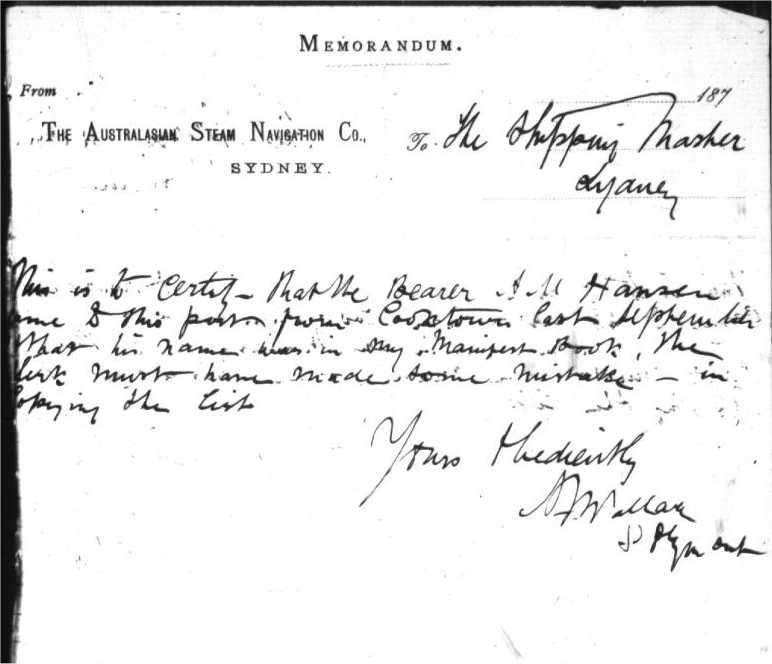 MEMORANDUM.
187
From
THE AUSTRALASIAN STEAM NAVIGATION CO.,
SYDNEY.
To The Shipping Master
Sydney
This is to Certify that the Bearer A M Hansen
ame to this port from Cooktown last September
that his name was in my Manifest Book, the
lerk must have made some mistake – in
Copying the list
Yours Obediently